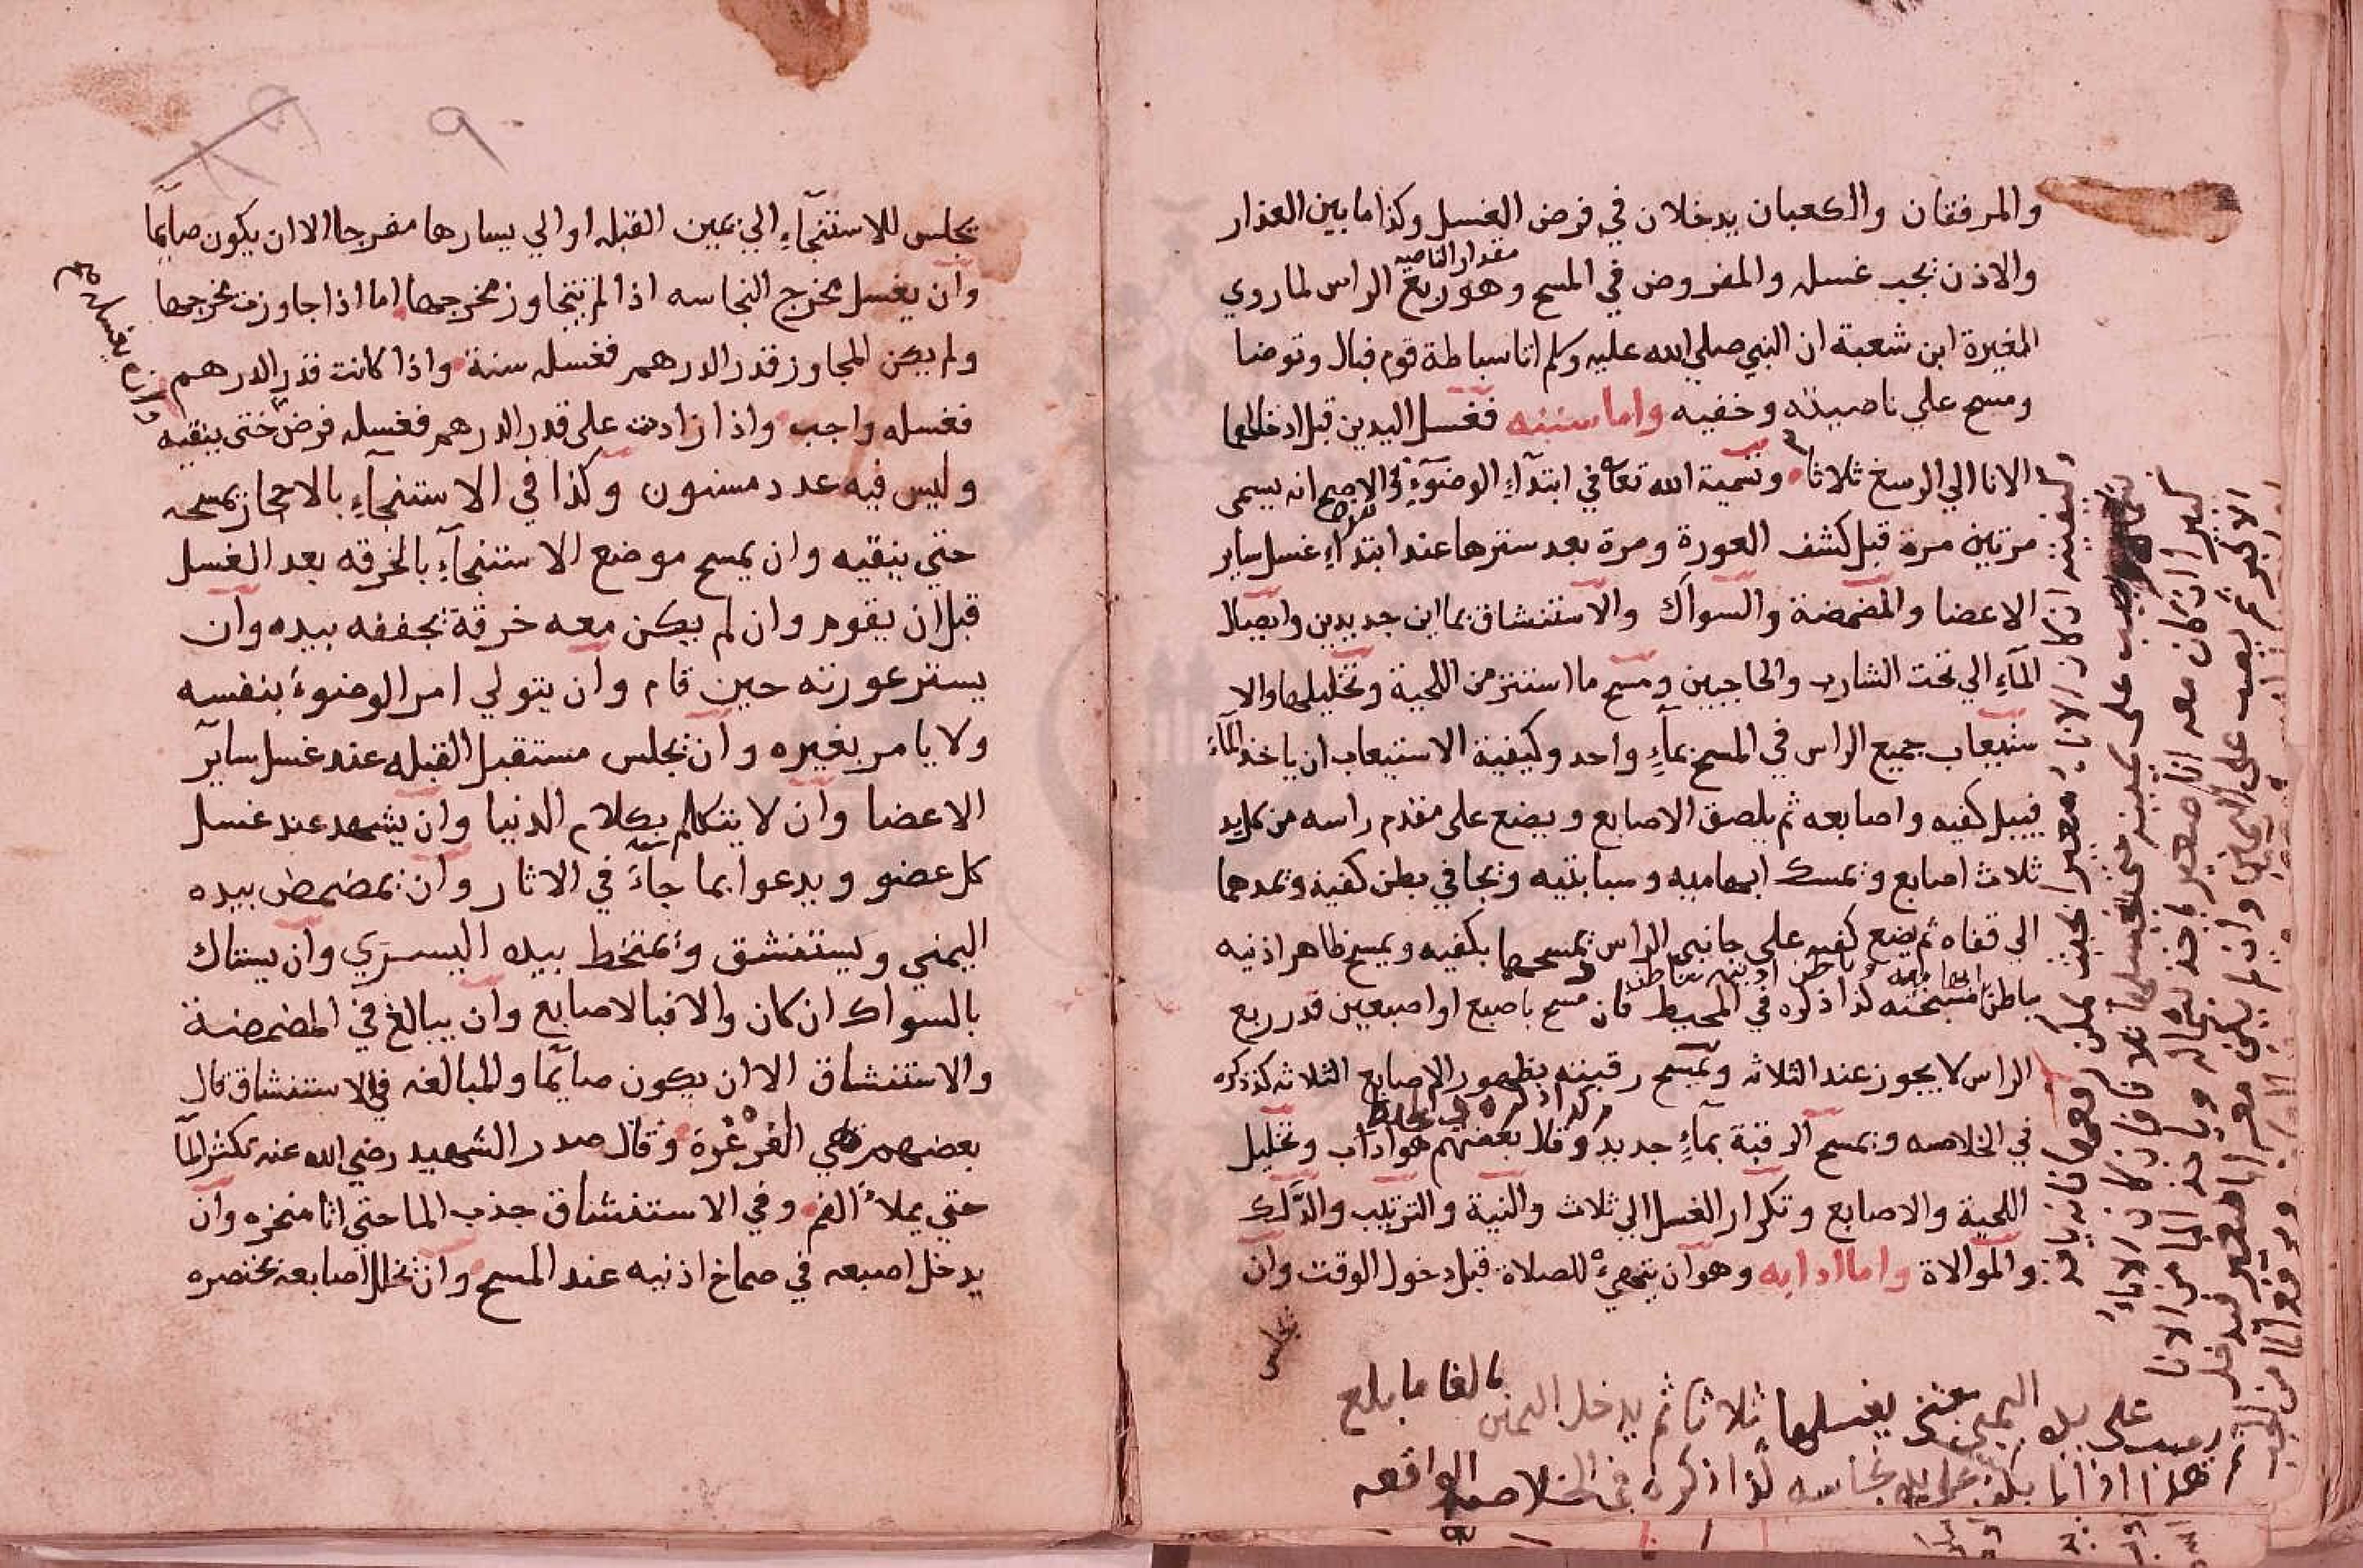 والمرفقان والكعبان يدخلان في فرض الغسل وكذا ما بين العذار
والاذن يجب غسله والمفروض في المسح مقدار الناصيه وهو ربع الراس لما روي
المغيرة ابن شعبة ان النبي صلي الله عليه وسلم اتا سباطة قوم فبال وتوضا
ومسح علي ناصيته وخفيه واما سننه فغسل اليدين قبل ادخالهما
الانا الي الرسغ ثلاثا وتسمية الله تعا في ابتدآء الوضوء في الاصح انه يسمى
مرتين مرة قبل كشف العورة ومرة بعد سترها عند ابتداء غسل ساير
الاعضا والمضمضة والسواك والاستنشاق بماين جديدين وايصال
المآء الي تحت الشارب والحاجبين ومسح ما استتر من اللحية وتخليلها والا
ستيعاب جميع الراس في المسح بمآء واحد وكيفية الاستيعاب ان ياخذ المآء
فيبل كفيه واصابعه ثم يلصق الاصابع ويضع على مقدم راسه من كل يد
ثلاث اصابع ويمسك ابهاميه وسبابتيه ويجافي بطن كفيه ويمدهما
الى قفاه ثم يضع كفيه علي جانبي الراس يمسحهما بكفيه ويمسح ظاهر اذنيه
بباطن ابهاميه وباطن اذنيه بباطن مسبحته كذا ذكره في المحيط فان مسح باصبع او اصبعين قدر ربع
الراس لا يجوز عند الثلاثه ويمسح رقبته بظهور الاصابع الثلاثه كذا ذكره
في الخلاصه ويمسح الرقبة بمآء جديد كذا ذكره في المحيط وقال بعضهم هو اداب وتخليل
اللحية والاصابع وتكرار الغسل الي ثلاث والنية والترتيب والدلك
والموالاة واما ادابه وهو آن يتهيء للصلاة قبل دخول الوقت وان
يجلس
كيفيته ان كان الانا صغير بحيث يمكن رفعها فانه ياخذ
بشماله ويصب على يمينه حتى يغسلها ثلاثا فان كان الاناء
كبيرا ان كان معه انا صغير ياخذ بشماله وياخذ الما من الانا
الاكبر ثم يصب على اليمين وان لم يكن معه انا صغير فيدخل
ويرفع الما من الجب
ويصب على يد اليمنى حتى يغسلها ثلاثا ثم يدخل اليمنى بالغا ما بلغ
هذا اذا لم يكن على يده نجاسه كذا ذكره في الخلاصه الواقعه
٩
يجلس للاستنجآء الي يمين القبله او الي يسارها منفرجا الا ان يكون صايما
وآن يغسل مخرج النجاسه اذا لم تتجاوز مخرجها اما اذا جاوزت مخرجها
ولم يكن المجاوز قدر الدرهم فغسله سنة واذا كانت قدر الدرهم
فغسله واجب واذا زادت على قدر الدرهم فغسله فرض حتى ينقيه
وان يغسله
وليس فيه عدد مسنون وكذا في الاستنجآء بالاحجار يمسحه
حتي ينقيه وان يمسح موضع الاستنجآء بالخرقه بعد الغسل
قبل ان يقوم وان لم يكن معه خرقة يجففه بيده وآن
يستر عورته حين قام وان يتولي امر الوضوء بنفسه
ولا يامر بغيره وآن يجلس مستقبل القبله عند غسل سآير
الاعضا وان لا يتكلم بكلام الدنيا وان يشهد عند غسل
كل عضو ويدعوا بما جآء في الاثار وان يمضمض بيده
اليمني ويستنشق ويمتخط بيده اليسري وآن يستاك
بالسواك ان كان والا فبالاصابع وان يبالغ في المضمضة
والاستنشاق الا ان يكون صآيما والمبالغه في الاستنشاق قال
بعضهم هي الغرغرة وقال صدر الشهيد رضي الله عنه تكثر المآ
حتي يملاء الفم وفي الاستنشاق جذب الما حتي اتا منخره وآن
يدخل اصبعه في صماخ اذنيه عند المسح وآن يخلل اصابعه بخنصره